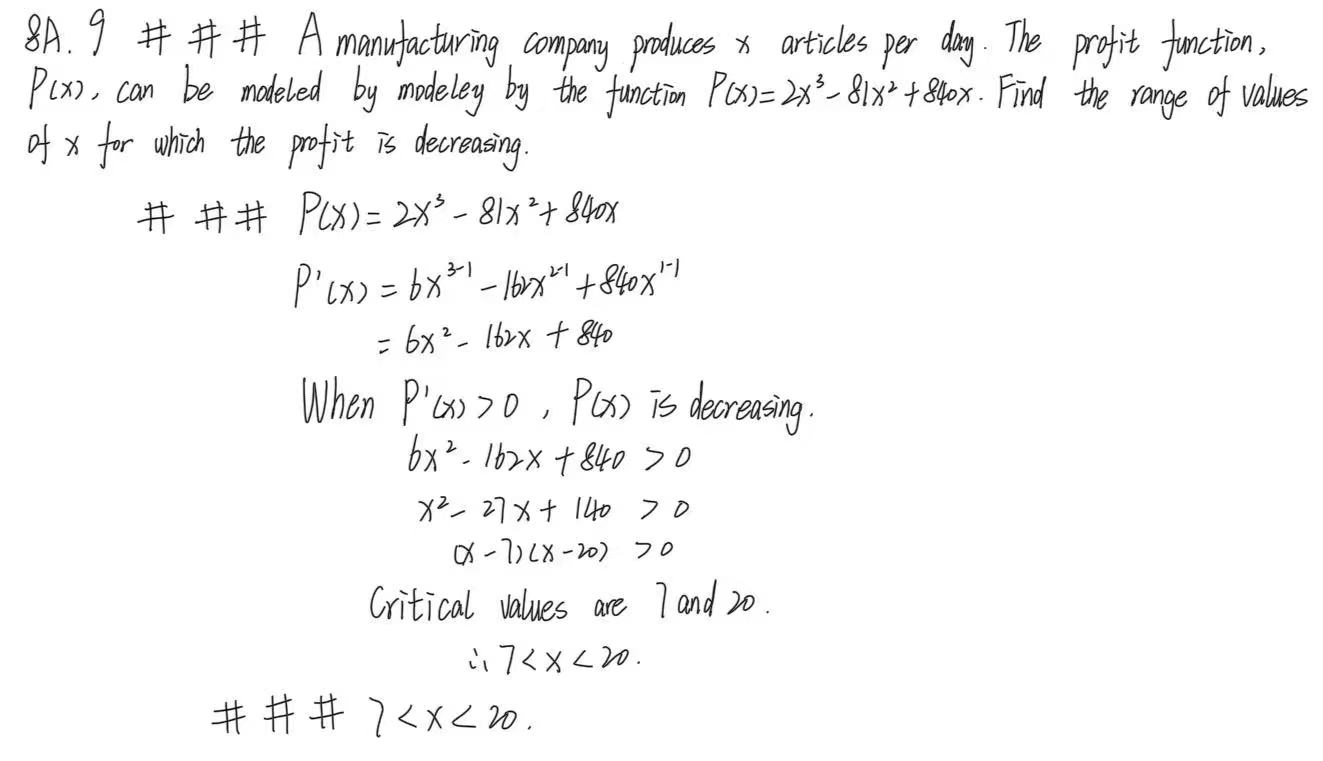 8A. 9 # # # A manufacturing company produces x articles per day. The profit function,
P(x), can be modeled by modeley by the function P(x)=2x³-81x²+840x. Find the range of values
of x for which the profit is decreasing.
# ## P(x)=2x³-81x²+840x
P'(x)=6x³⁻¹-162x²⁻¹+840x¹⁻¹
=6x²-162x+840
When P'(x)>0, P(x) is decreasing.
6x²-162x+840>0
x²-27x+140>0
(x-7)(x-20)>0
Critical values are 7 and 20.
∴ 7<x<20.
# # # 7<x<20.